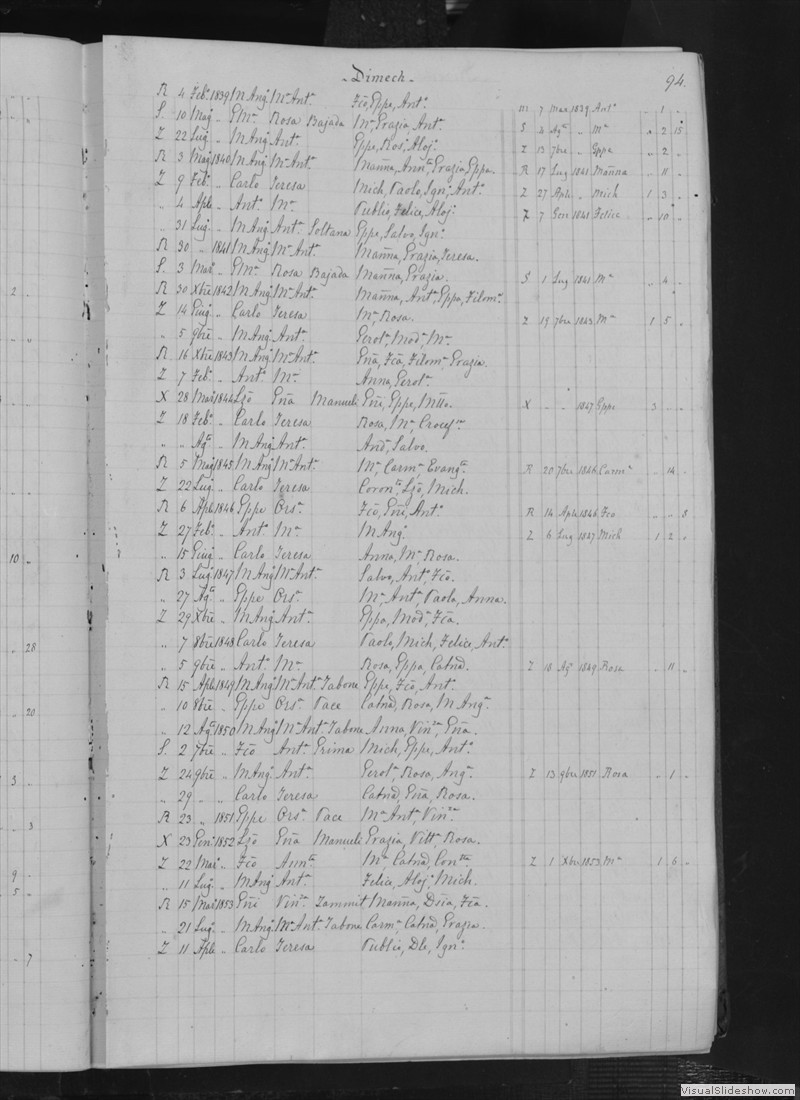 Dimech
94.
R 4 Feb.º 1839 M Ang.º M.ª Ant.ª Fcõ, Gppe, Ant.º m 7 Mar 1839 Ant.º " 1 "
S. 10 Mag.º " M.ª Rosa Bajada M.ª, Grazia, Ant.ª S 4 Ag.º " M.ª " 2 15
Z 22 Lug.º " M Ang.º Ant.ª Gppe, Ros.ª, Aloj.ª Z 13 7bre " Gppe " 2 "
R 3 Mag.º 1840 M Ang.º M.ª Ant.ª Mañna, Ann.ta, Grazia, Gppa. R 17 Lug 1841 Mañna " 11 "
Z 9 Feb.º " Carlo Teresa Mich, Paolo, Ign.º, Ant.º Z 27 Aple " Mich 1 3 "
" 4 Aple " Ant.º M.ª Publio, Felice, Aloj.º Z 7 Gen 1841 Felice " 10 "
" 31 Lug.º " M Ang.º Ant.ª Soltana Gppe, Salvo, Ign.º
R 30 " 1841 M Ang.º M.ª Ant.ª Mañna, Grazia, Teresa.
S. 3 Mar.º " M.ª Rosa Bajada Mañna, Grazia. S 1 Lug 1841 M.ª " 4 "
R 30 Xbre 1842 M Ang.º M.ª Ant.ª Mañna, Ant.ª, Gppa, Filom.ª
Z 14 Giug.º " Carlo Teresa M.ª, Rosa. Z 19 7bre 1843 M.ª 1 5 "
" 5 9bre " M Ang.º Ant.ª Gerol.ª, Mod.ª, M.ª
R 16 Xbre 1843 M Ang.º M.ª Ant.ª Eña, Fcã, Filom.ª, Grazia.
Z 7 Feb.º " Ant.º M.ª Anna, Gerol.ª
X 28 Mar 1844 Lzõ Eña Manueli Eñe, Gppe, X " " 1847 Gppe 3 " "
Z 18 Feb.º " Carlo Teresa Rosa, M.ª, Crocef.sa
" " Ag.º " M Ang.º Ant.ª And.ª, Salvo.
R 5 Mag 1845 M Ang.º M.ª Ant.ª M.ª, Carm.ª, Evang.ta R 20 7bre 1846 Carm.ª " 14 "
Z 22 Lug.º " Carlo Teresa Coron.to, Lzõ, Mich.
R 6 Aple 1846 Gppe Ors.ª Fcõ, Eñe, Ant.º R 14 Aple 1846 Fco " " 8
Z 27 Feb.º " Ant.º M.ª M Ang.º Z 6 Lug 1847 Mich 1 2 "
" 15 Giug.º " Carlo Teresa Anna, M.ª, Rosa.
R 3 Lug.º 1847 M Ang.º M.ª Ant.ª Salvo, Ant.º, Fcõ.
" 27 Ag.º " Gppe Ors.ª M.ª Ant.ª, Paola, Anna.
Z 29 Xbre " M Ang.º Ant.ª Gppa, Mod.ª, Fcã.
" 7 8bre 1848 Carlo Teresa Paolo, Mich, Felice, Ant.º
" 5 9bre " Ant.º M.ª Rosa, Gppa, Catnã. Z 18 Ag.º 1849 Rosa " 11 "
R 15 Aple 1849 M Ang.º M.ª Ant.ª Tabone Gppe, Fcõ, Ant.º
" 10 8bre " Gppe Ors.ª Pace Catnã, Rosa, M Ang.ª
" 12 Ag.º 1850 M Ang.º M.ª Ant.ª Tabone Anna, Vin.za, Eña.
S. 2 7bre " Fcõ Ant.ª Grima Mich, Gppe, Ant.º
Z 24 9bre " M Ang.º Ant.ª Gerol.ª, Rosa, Ang.ª Z 13 9bre 1851 Rosa " 1 "
" 29 " " Carlo Teresa Catnã, Eña, Rosa.
R 23 " 1851 Gppe Ors.ª Pace M.ª Ant.ª, Vin.za
X 23 Gen.º 1852 Lzõ Eña Manueli Grazia, Vitt.ª, Rosa.
Z 22 Mar.º " Fcõ Ann.ta M.ª, Catnã, Con.tta Z 1 Xbre 1853 M.ª 1 6 "
" 11 Lug.º " M Ang.º Ant.ª Felice, Aloj.º, Mich.
R 15 Mar 1853 Eñe Vin.za Zammit Mañna, Dña, Fcã.
" 21 Lug.º " M Ang.º M.ª Ant.ª Tabone Carm.ª, Catnã, Grazia.
Z 11 Aple " Carlo Teresa Publio, Dle, Ign.º
2
10
28
20
3
3
9
5
7
VisualSlideshow.com